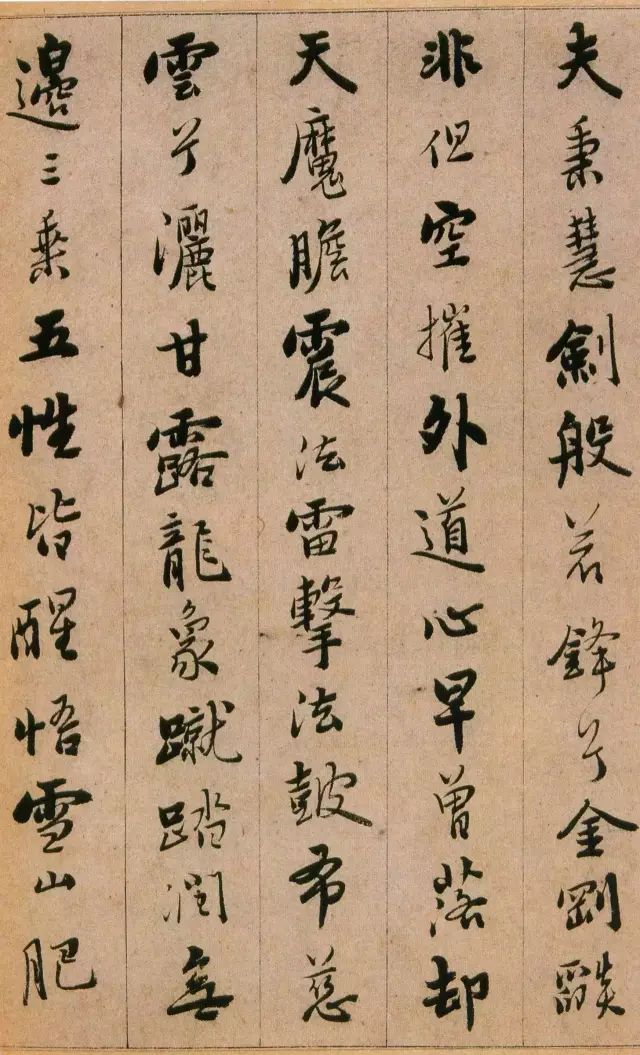 夫秉慧劍般若鋒兮金剛燄
非但空摧外道心早曽落却
天魔膽震法雷擊法鼓布慈
雲兮灑甘露龍象蹴踏潤無
邊三乗五性皆醒悟雪山肥